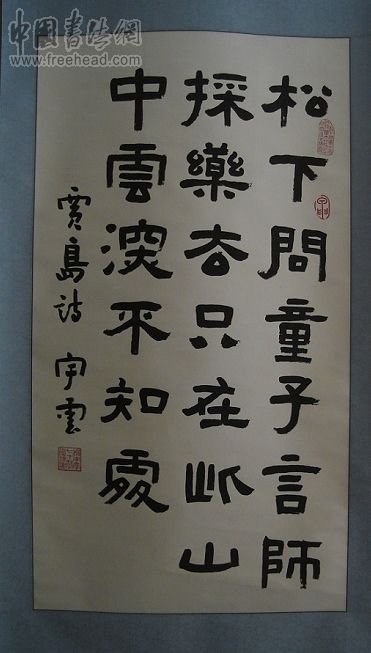 中國書法網
www.freehead.com
松下問童子言師
採藥去只在此山
中雲深不知處
賈島詩 宇雲